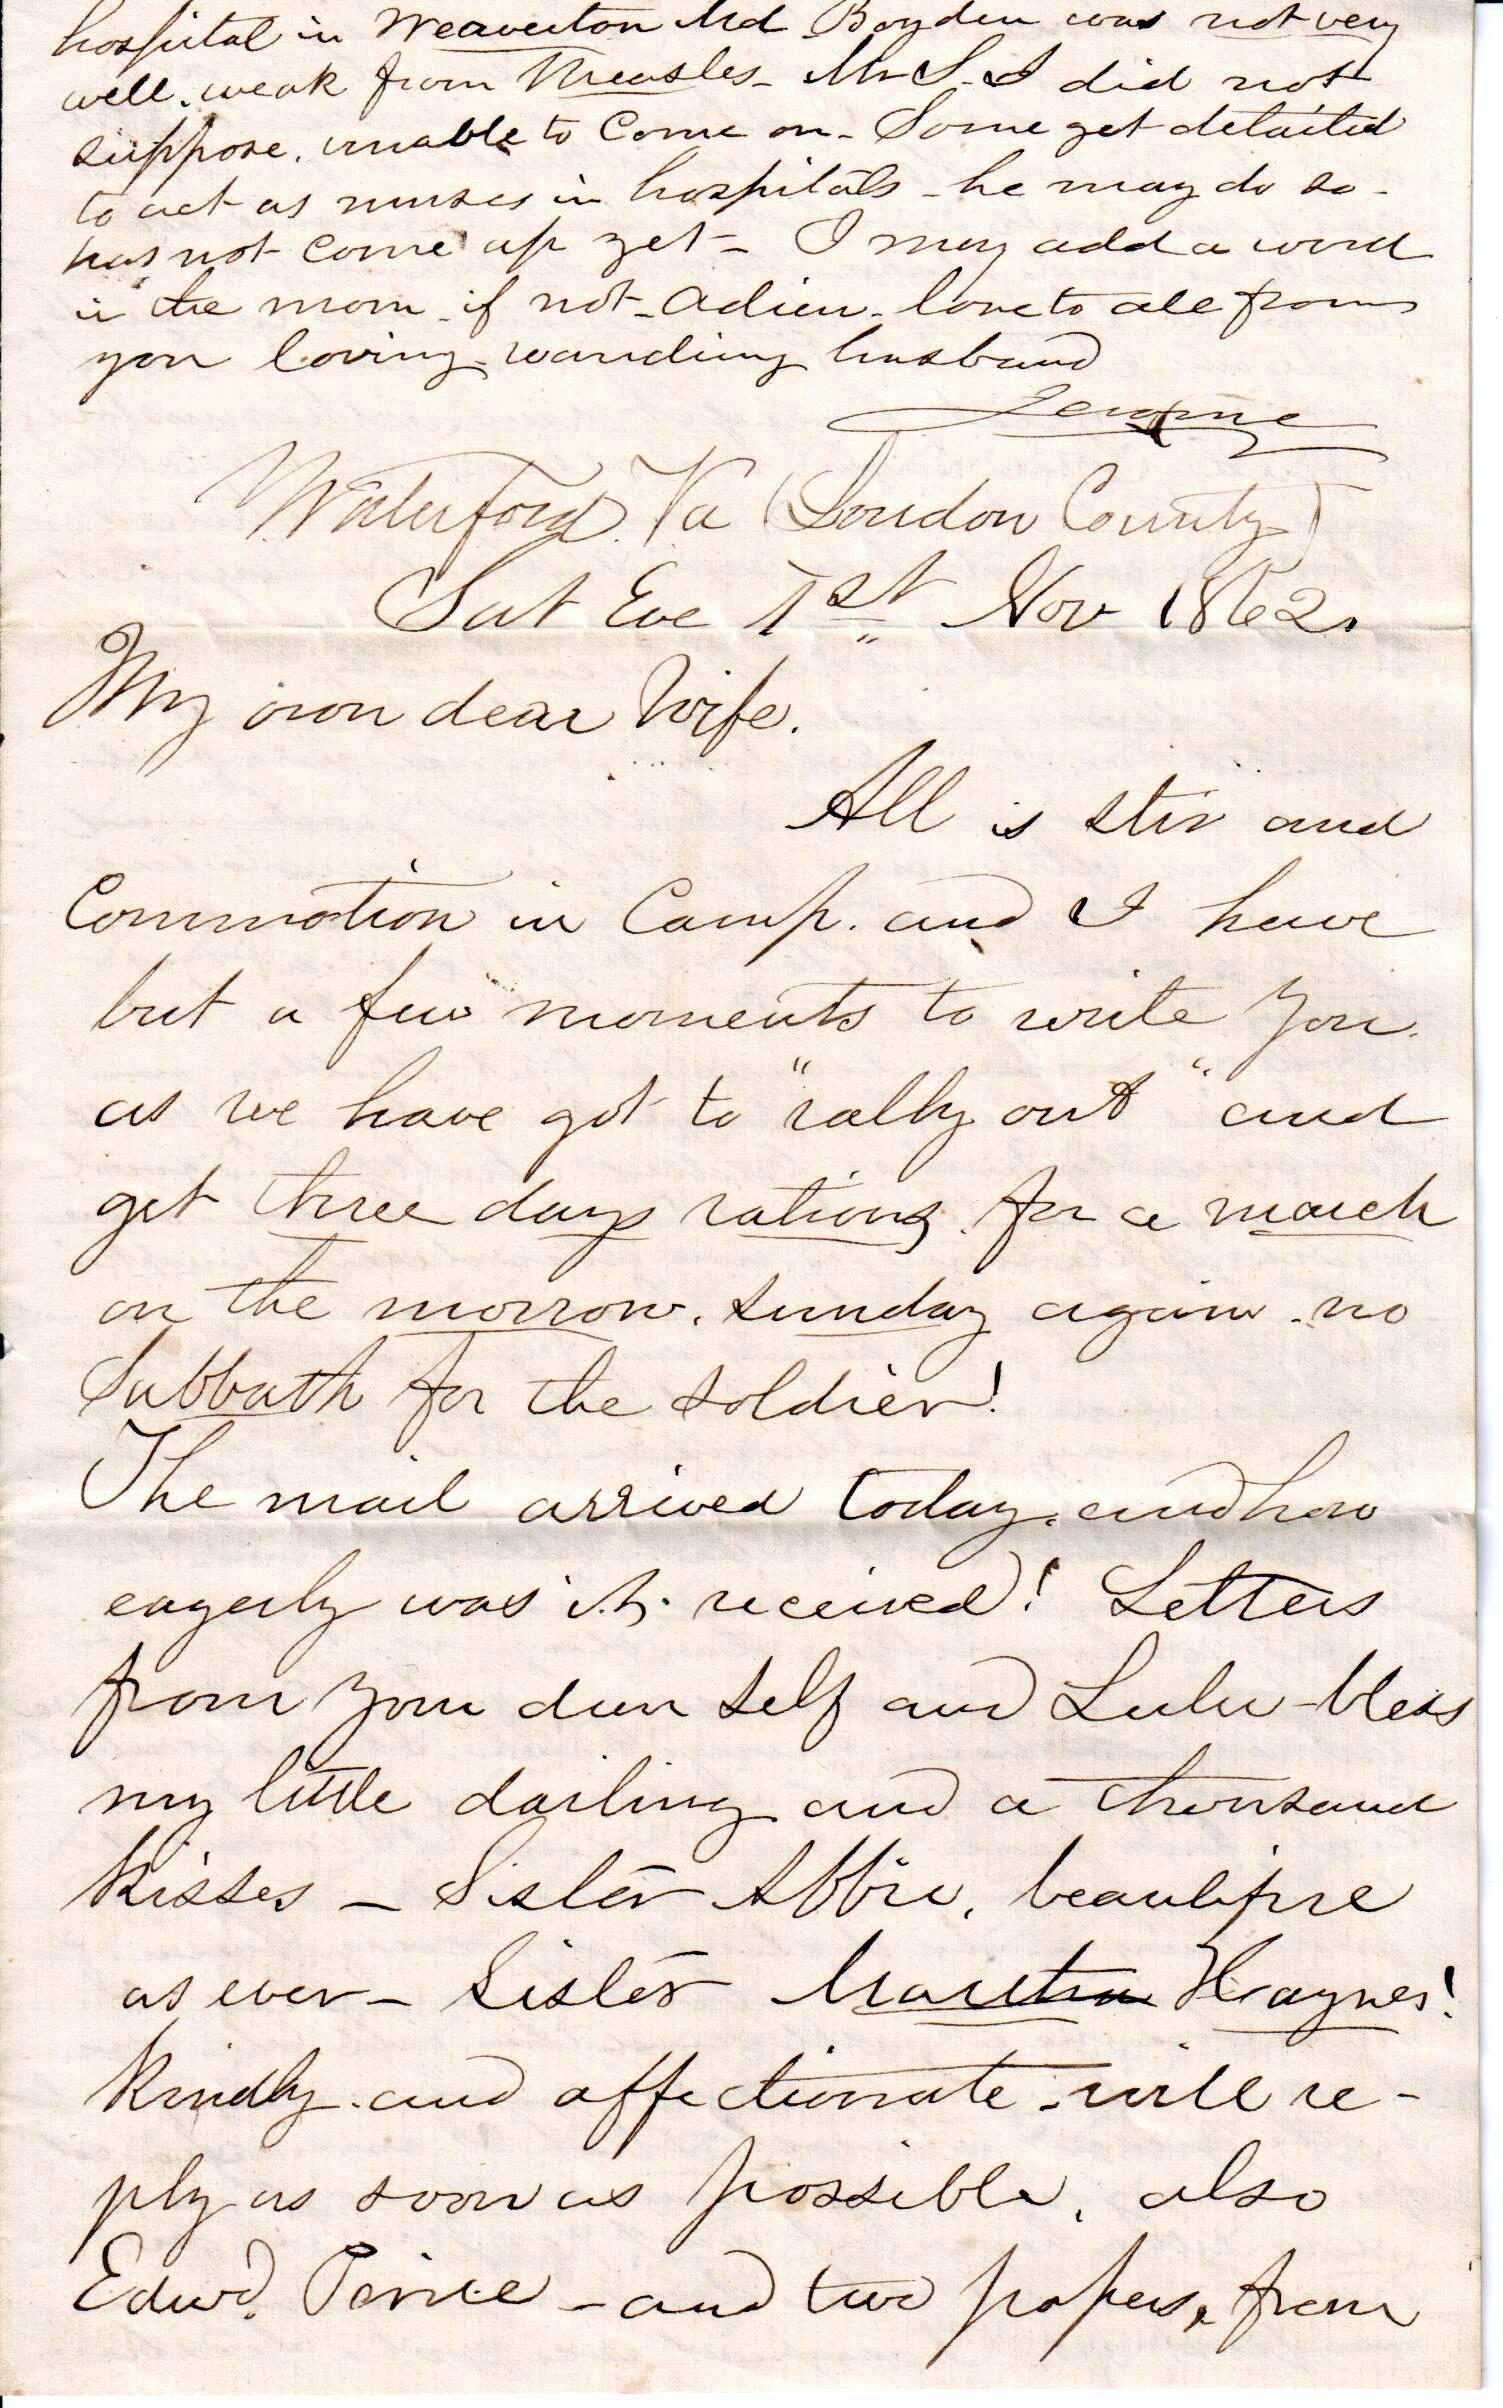 hospital in Weaverton Md Boyden was not very
well. weak from Measles - Mr S. I did not
suppose, unable to Come on - Some get detailed
to act as nurses in hospitals - he may do so -
has not come up yet - I may add a word
in the morn - if not - Adieu - love to all from
you loving wandering husband
Jerome
Waterford. Va (Loudon County)
Sat Eve 1st Nov 1862.
My own dear Wife.
All is stir and
Commotion in Camp. and I have
but a few moments to write you.
as we have got to "rally out" and
get three days rations for a march
on the morrow. Sunday again - no
Sabbath for the soldier!
The mail arrived today, and how
eagerly was it received! Letters
from your dear self and Lulu - bless
my little darling and a thousand
kisses - Sister Abbie, beautiful
as ever - Sister Martha Haynes!
kindly and affectionate - will re-
ply as soon as possible, also
Edwd. - and two papers, from